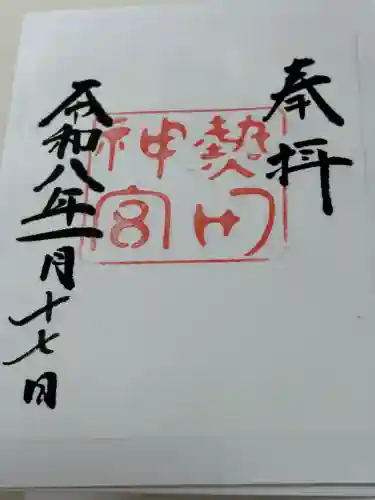 奉拝
熱田
神宮
令和八年一月十七日